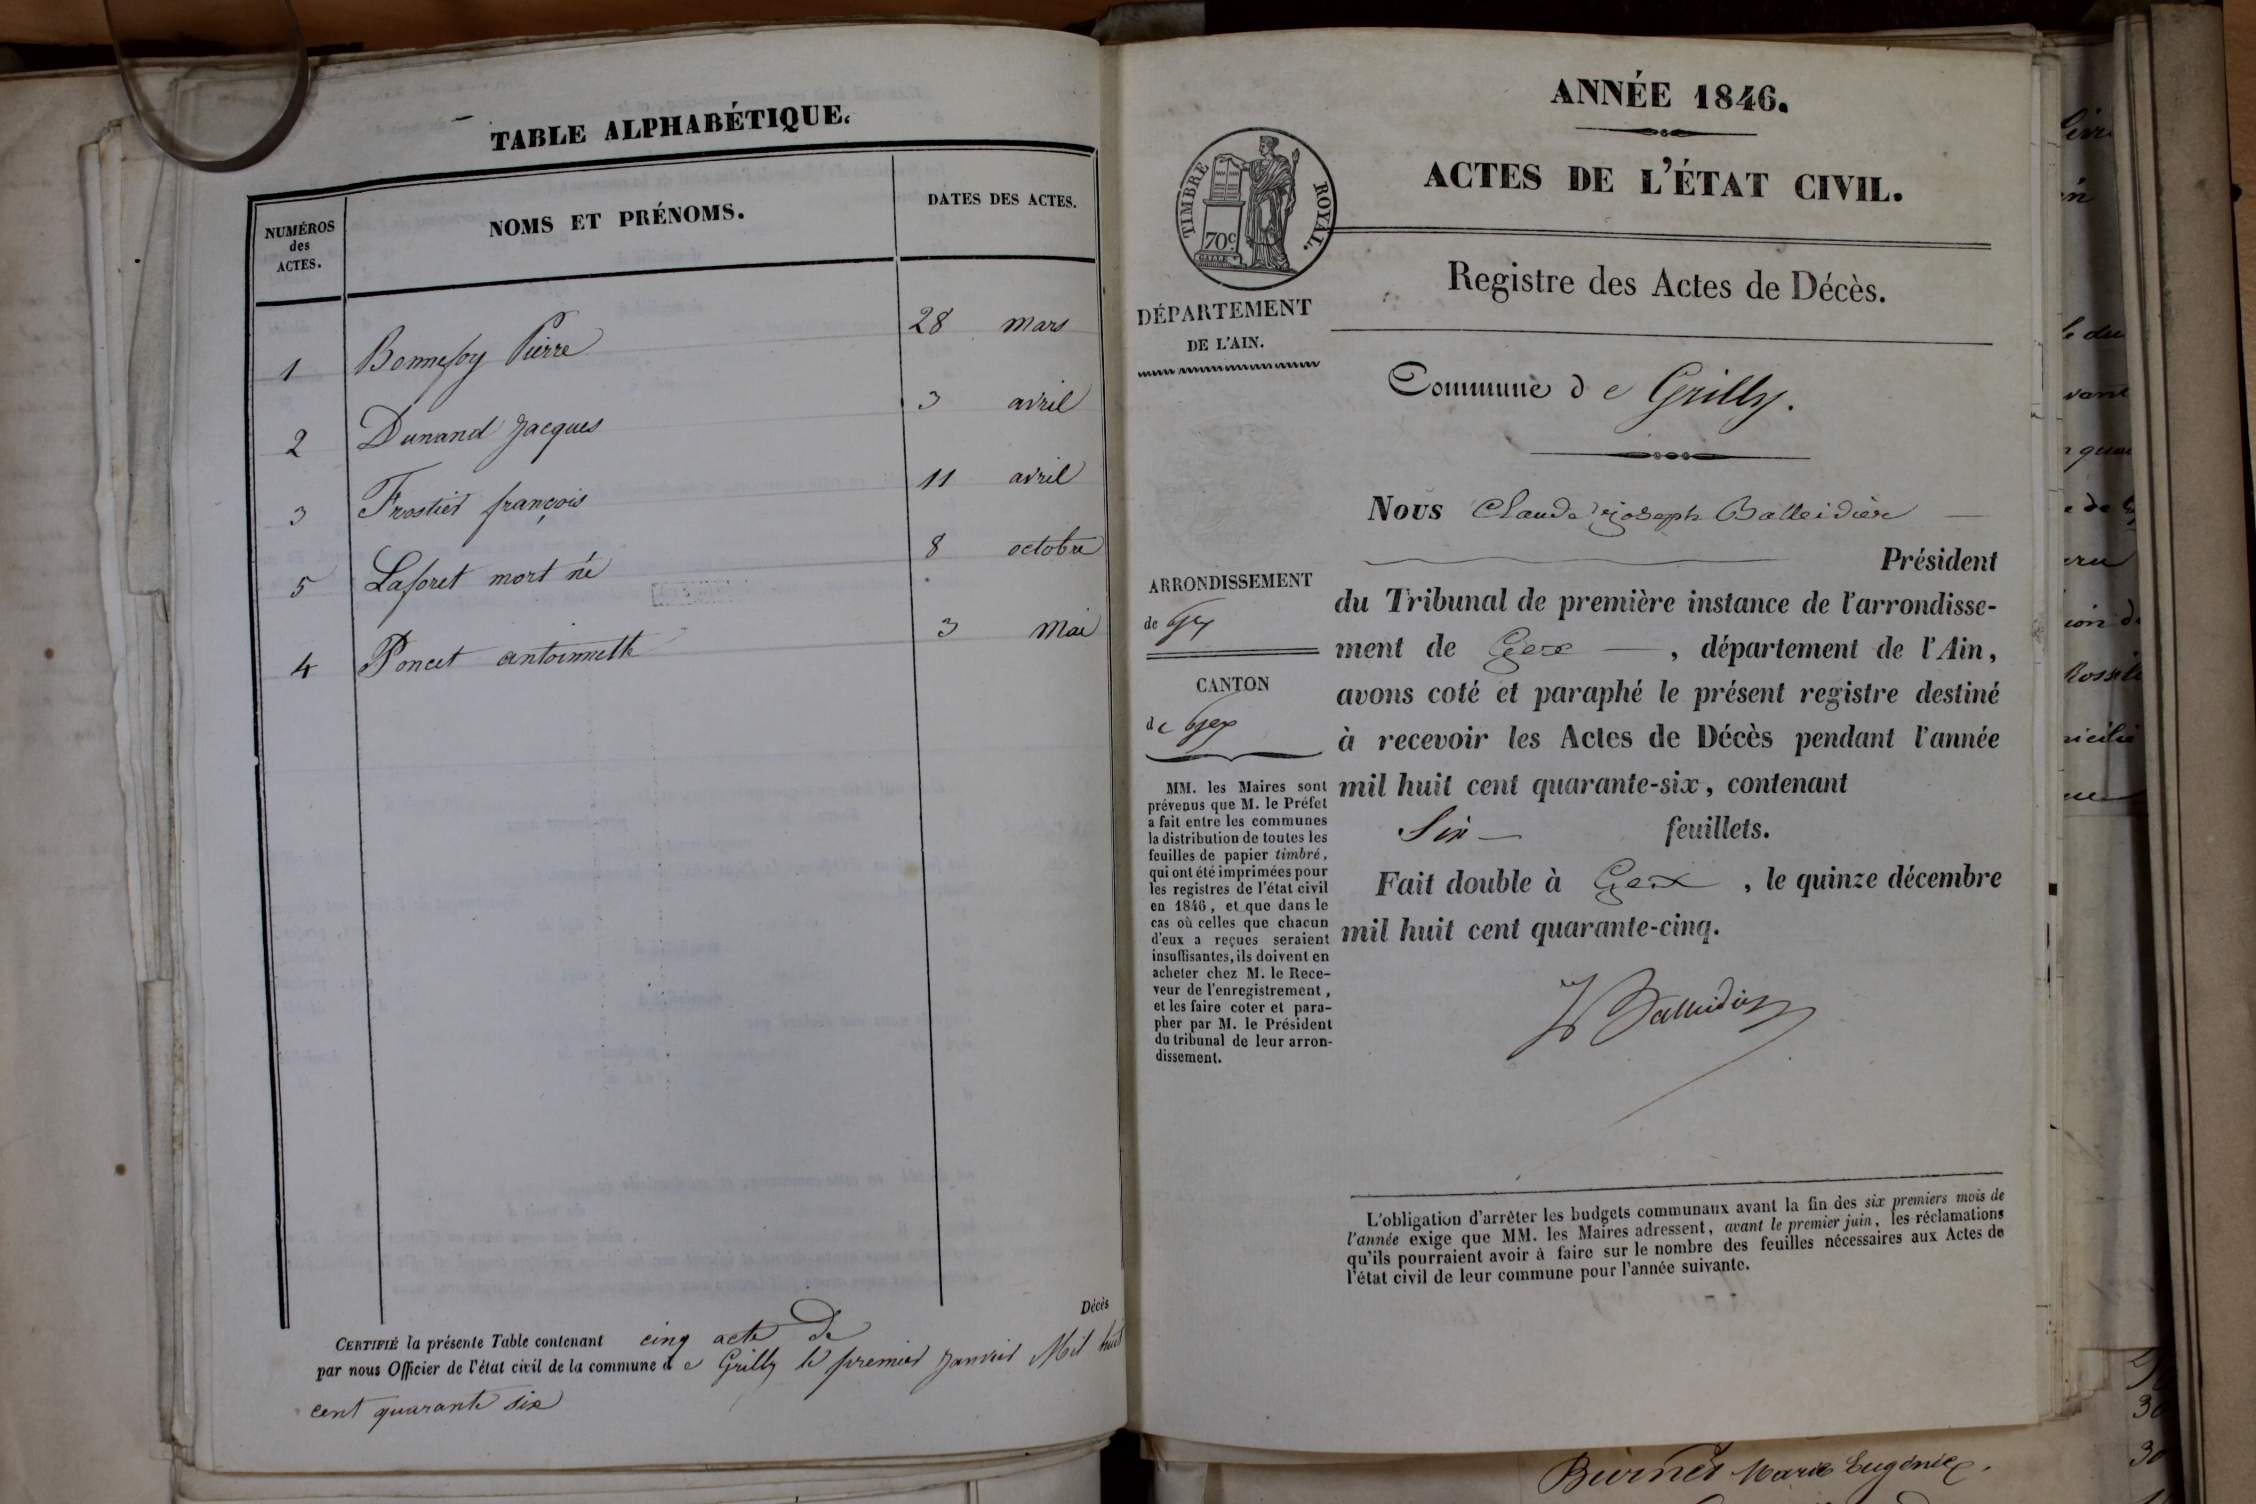 TABLE ALPHABÉTIQUE.
NUMÉROS
des
ACTES.
NOMS ET PRÉNOMS.
DATES DES ACTES.
1 Bonnefoy Pierre 28 mars
2 Dunand Jacques 3 avril
3 Frostier françois 11 avril
5 Laforet mort né 8 octobre
4 Poncet antoinette 3 Mai
CERTIFIÉ la présente Table contenant cinq acte de Décès
par nous Officier de l'état civil de la commune de Grilly le premier Janvier Mil huit
cent quarante six
ANNÉE 1846.
ACTES DE L'ÉTAT CIVIL.
TIMBRE ROYAL.
70c
DÉPARTEMENT
DE L'AIN.
Registre des Actes de Décès.
Commune de Grilly.
ARRONDISSEMENT
de Gex
CANTON
de Gex
MM. les Maires sont
prévenus que M. le Préfet
a fait entre les communes
la distribution de toutes les
feuilles de papier timbré,
qui ont été imprimées pour
les registres de l'état civil
en 1846, et que dans le
cas où celles que chacun
d'eux a reçues seraient
insuffisantes, ils doivent en
acheter chez M. le Rece-
veur de l'enregistrement,
et les faire coter et para-
pher par M. le Président
du tribunal de leur arron-
dissement.
Nous Claude Joseph Balleidier
Président
du Tribunal de première instance de l'arrondisse-
ment de Gex, département de l'Ain,
avons coté et paraphé le présent registre destiné
à recevoir les Actes de Décès pendant l'année
mil huit cent quarante-six, contenant
Six feuillets.
Fait double à Gex, le quinze décembre
mil huit cent quarante-cinq.
Balleidier
L'obligation d'arrêter les budgets communaux avant la fin des six premiers mois de
l'année exige que MM. les Maires adressent, avant le premier juin, les réclamations
qu'ils pourraient avoir à faire sur le nombre des feuilles nécessaires aux Actes de
l'état civil de leur commune pour l'année suivante.
Burnet Marie Eugénie.